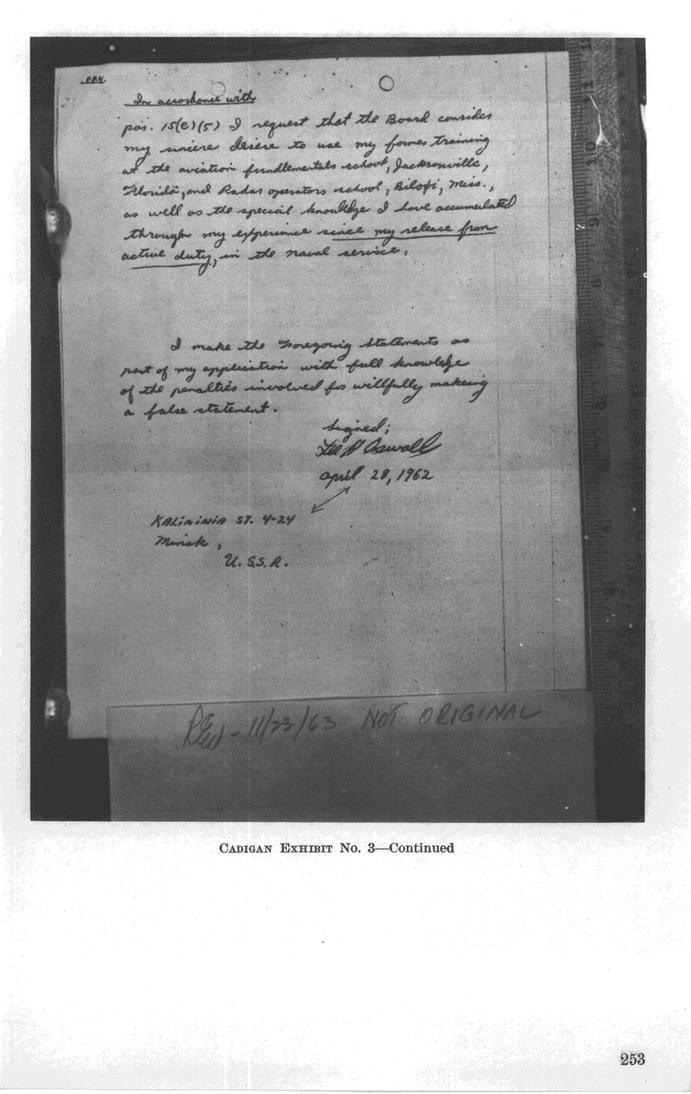 In accordance with
par. 15(e)(5) I request that the Board consider
my sincere desire to use my former training
at the aviation fundlementals school, Jacksonville,
Florida, and Radar operators school, Biloxi, Miss.,
as well as the special knowledge I have accumulated
through my experience since my release from
active duty, in the naval service.
I make the Foregoing statements as
part of my application with full knowledge
of the penalties involved for willfully makeing
a false statement.
signed;
Lee H Oswald
April 28, 1962
KALININIA ST. 4-24
Minsk,
U.S.S.R.
11/23/63 NOT ORIGINAL
CADIGAN EXHIBIT No. 3—Continued
253